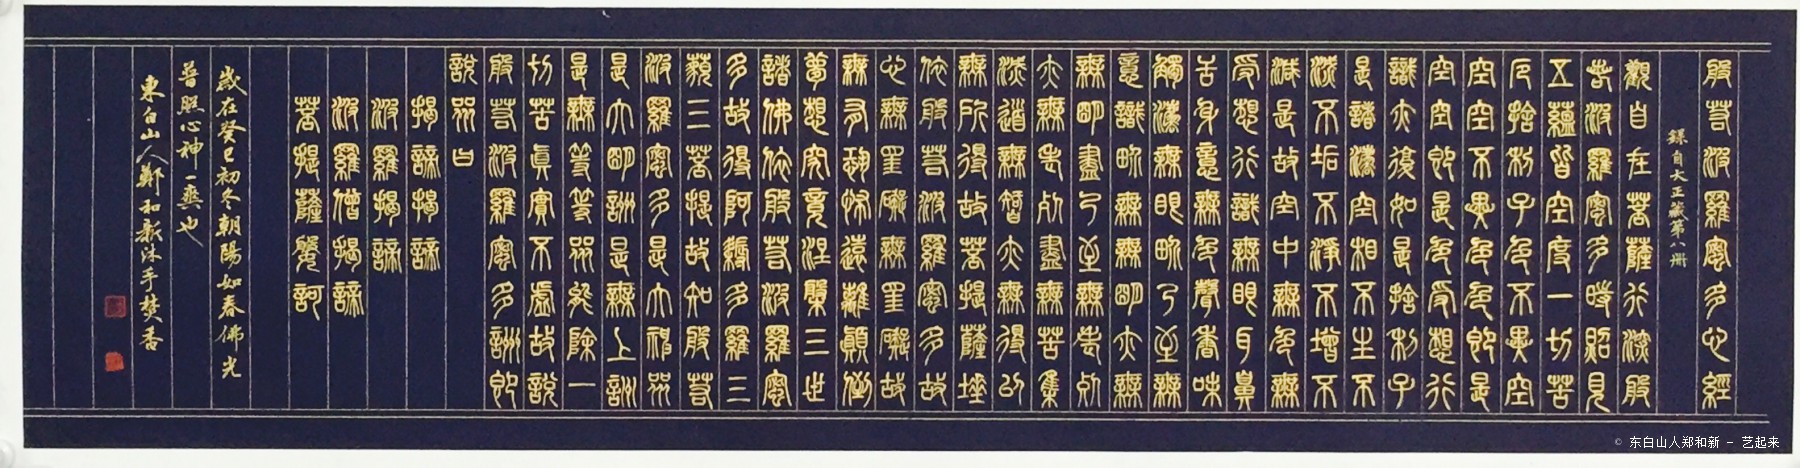 般若波羅蜜多心經
錄自大正藏第八冊
觀自在菩薩行深般
若波羅蜜多時照見
五蘊皆空度一切苦
厄捨利子色不異空
空空不異色色即是
空空即是色受想行
識亦復如是捨利子
是諸法空相不生不
滅不垢不淨不增不
減是故空中無色無
受想行識無眼耳鼻
舌身意無色聲香味
觸法無眼界乃至無
意識界無無明亦無
無明盡乃至無老死
亦無老死盡無苦集
滅道無智亦無得以
無所得故菩提薩埵
依般若波羅蜜多故
心無罣礙無罣礙故
無有恐怖遠離顛倒
夢想究竟涅槃三世
諸佛依般若波羅蜜
多故得阿耨多羅三
藐三菩提故知般若
波羅蜜多是大神咒
是大明詶是無上詶
是無等等咒能除一
切苦真實不虛故說
般若波羅蜜多詶即
說咒曰
揭諦揭諦
波羅揭諦
波羅僧揭諦
菩提薩婆訶
歲在癸巳初冬朝陽如春佛光
普照心神一爽也
東白山人鄭和新沐手焚香
© 东白山人郑和新 - 艺起来